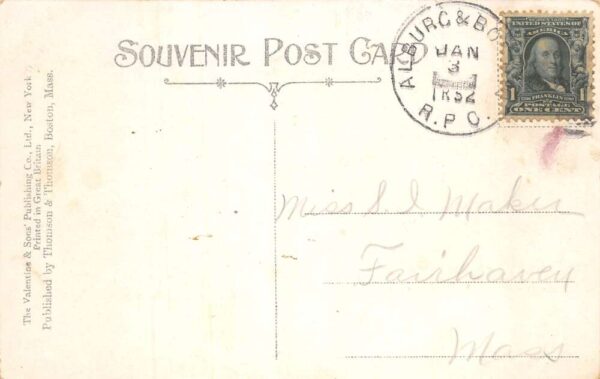 SOUVENIR POST CARD
The Valentine & Sons' Publishing Co., Ltd., New York
Printed in Great Britain
Published by Thomson & Thomson, Boston, Mass.
ALBURG & BO
JAN
3
TR 52
R.P.O.
UNITED STATES OF
AMERICA
1 FRANKLIN 1
POSTAGE
ONE CENT
Miss I. I. Maker
Fairhaven
Mass